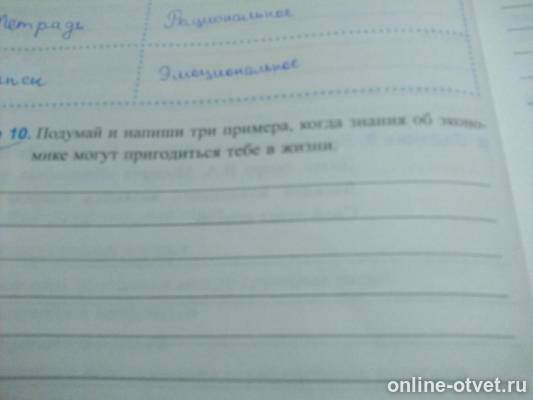 тетрадь Рациональное
Эмоциональное
10. Подумай и напиши три примера, когда знания об эконо-
мике могут пригодиться тебе в жизни.
online-otvet.ru